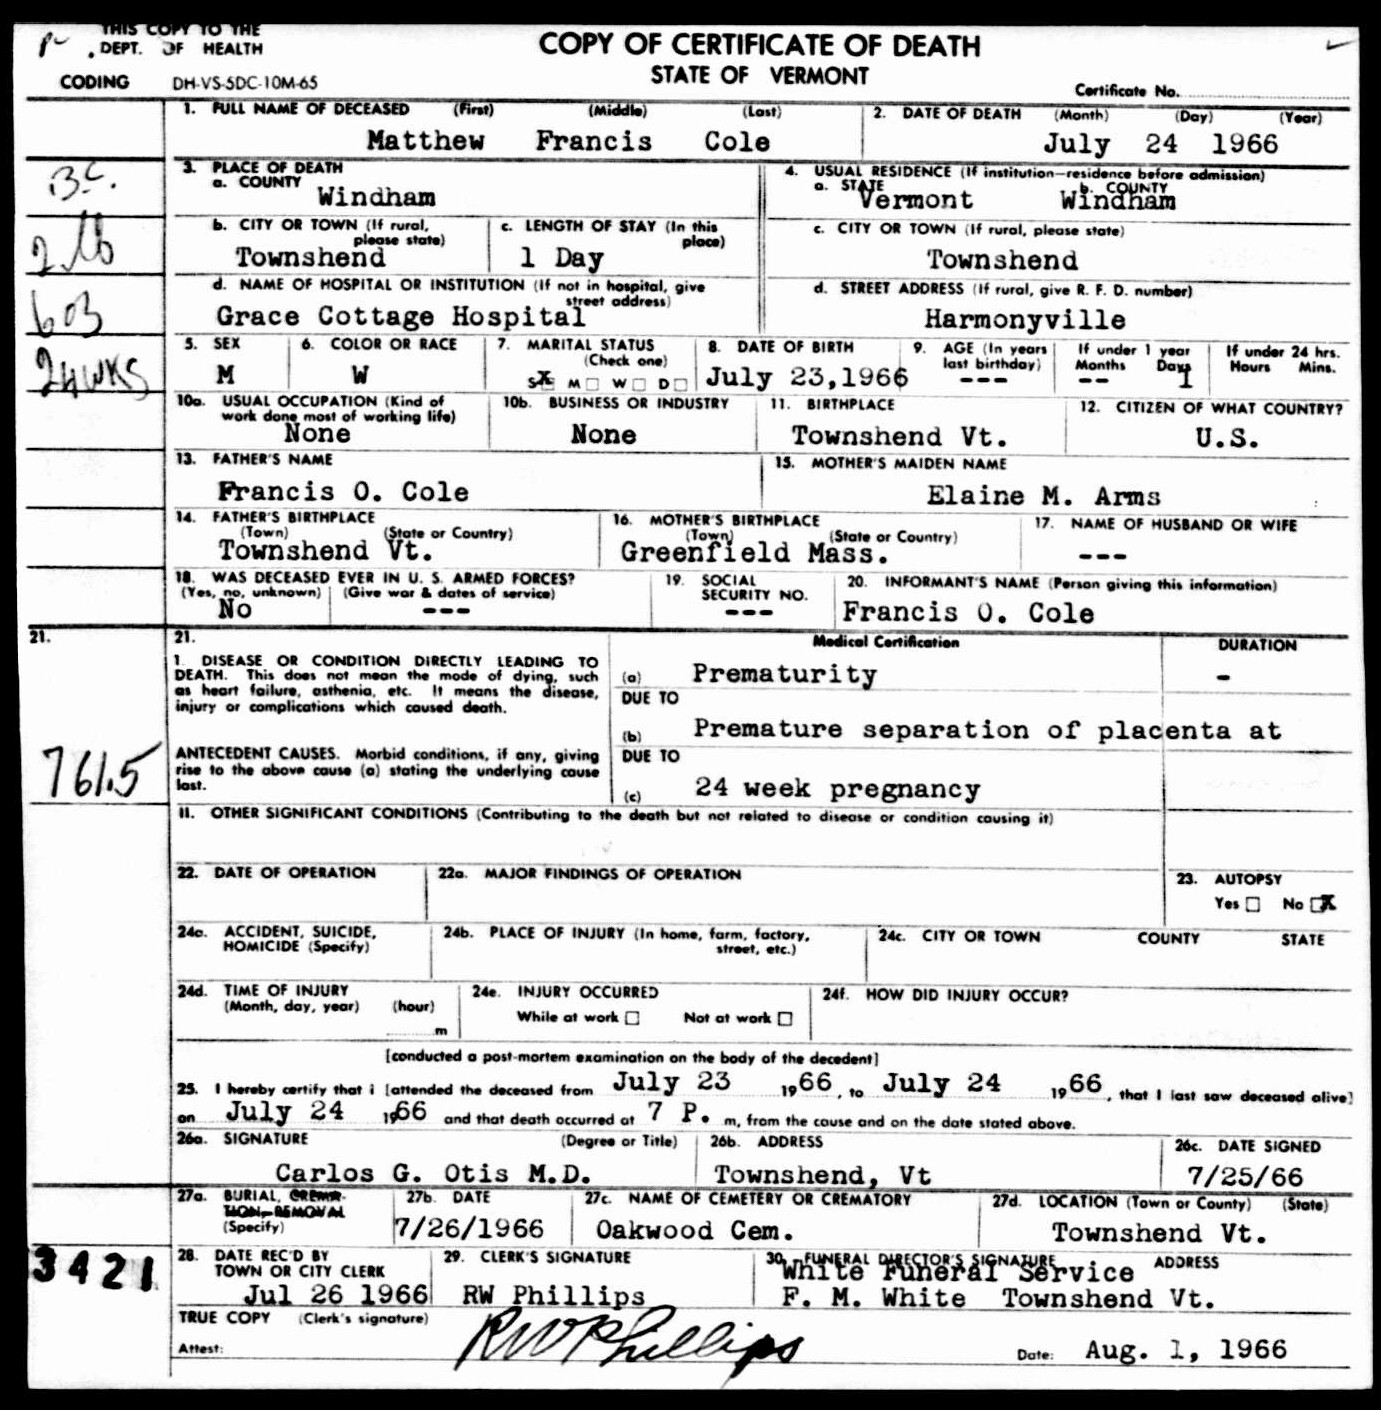 THIS COPY TO THE
DEPT. OF HEALTH
COPY OF CERTIFICATE OF DEATH
STATE OF VERMONT
CODING
DH-VS-5DC-10M-65
Certificate No.
1. FULL NAME OF DECEASED (First) (Middle) (Last)
Matthew Francis Cole
2. DATE OF DEATH (Month) (Day) (Year)
July 24 1966
3. PLACE OF DEATH
a. COUNTY
Windham
4. USUAL RESIDENCE (If institution—residence before admission)
a. STATE b. COUNTY
Vermont Windham
b. CITY OR TOWN (If rural, please state)
Townshend
c. LENGTH OF STAY (In this place)
1 Day
c. CITY OR TOWN (If rural, please state)
Townshend
d. NAME OF HOSPITAL OR INSTITUTION (If not in hospital, give street address)
Grace Cottage Hospital
d. STREET ADDRESS (If rural, give R. F. D. number)
Harmonyville
603
24 WKS
5. SEX
M
6. COLOR OR RACE
W
7. MARITAL STATUS
(Check one)
S X M W D
8. DATE OF BIRTH
July 23,1966
9. AGE (In years last birthday)
---
If under 1 year
Months Days
-- 1
If under 24 hrs.
Hours Mins.
10a. USUAL OCCUPATION (Kind of work done most of working life)
None
10b. BUSINESS OR INDUSTRY
None
11. BIRTHPLACE
Townshend Vt.
12. CITIZEN OF WHAT COUNTRY?
U.S.
13. FATHER'S NAME
Francis O. Cole
15. MOTHER'S MAIDEN NAME
Elaine M. Arms
14. FATHER'S BIRTHPLACE
(Town) (State or Country)
Townshend Vt.
16. MOTHER'S BIRTHPLACE
(Town) (State or Country)
Greenfield Mass.
17. NAME OF HUSBAND OR WIFE
---
18. WAS DECEASED EVER IN U. S. ARMED FORCES?
(Yes, no, unknown) (Give war & dates of service)
No ---
19. SOCIAL SECURITY NO.
---
20. INFORMANT'S NAME (Person giving this information)
Francis O. Cole
21.
21.
Medical Certification
DURATION
1. DISEASE OR CONDITION DIRECTLY LEADING TO
DEATH. This does not mean the mode of dying, such
as heart failure, asthenia, etc. It means the disease,
injury or complications which caused death.
(a) Prematurity -
DUE TO
(b) Premature separation of placenta at
ANTECEDENT CAUSES. Morbid conditions, if any, giving
rise to the above cause (a) stating the underlying cause
last.
DUE TO
(c) 24 week pregnancy
761.5
II. OTHER SIGNIFICANT CONDITIONS (Contributing to the death but not related to disease or condition causing it)
22. DATE OF OPERATION
22a. MAJOR FINDINGS OF OPERATION
23. AUTOPSY
Yes No X
24a. ACCIDENT, SUICIDE,
HOMICIDE (Specify)
24b. PLACE OF INJURY (In home, farm, factory,
street, etc.)
24c. CITY OR TOWN COUNTY STATE
24d. TIME OF INJURY
(Month, day, year) (hour)
m
24e. INJURY OCCURRED
While at work Not at work
24f. HOW DID INJURY OCCUR?
[conducted a post-mortem examination on the body of the decedent]
25. I hereby certify that i [attended the deceased from July 23 1966, to July 24 1966, that I last saw deceased alive]
on July 24 1966 and that death occurred at 7 P. m, from the cause and on the date stated above.
26a. SIGNATURE (Degree or Title)
Carlos G. Otis M.D.
26b. ADDRESS
Townshend, Vt
26c. DATE SIGNED
7/25/66
27a. BURIAL, CREMA-
TION-REMOVAL
(Specify)
27b. DATE
7/26/1966
27c. NAME OF CEMETERY OR CREMATORY
Oakwood Cem.
27d. LOCATION (Town or County) (State)
Townshend Vt.
3421
28. DATE REC'D BY
TOWN OR CITY CLERK
Jul 26 1966
29. CLERK'S SIGNATURE
RW Phillips
30. FUNERAL DIRECTOR'S SIGNATURE ADDRESS
White Funeral Service
F. M. White Townshend Vt.
TRUE COPY (Clerk's signature)
Attest: RW Phillips
Date: Aug. 1, 1966